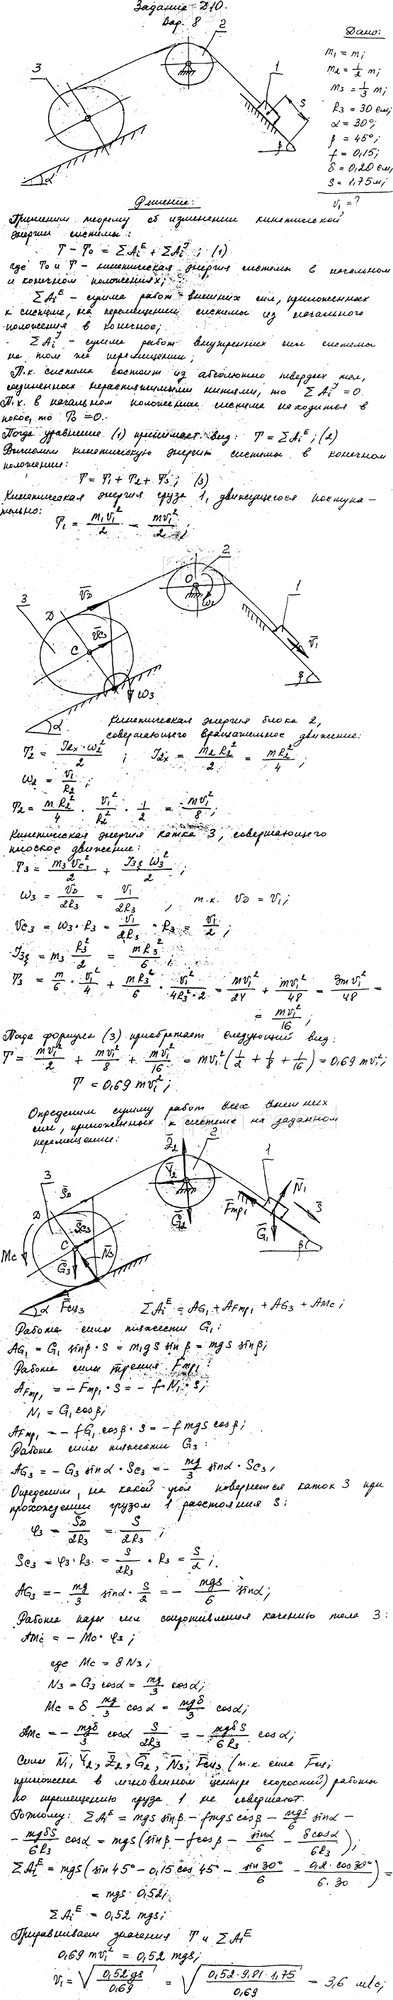 Задание Д10.
Вар. 8
Дано:
m₁ = m;
m₂ = 1/2 m;
m₃ = 1/3 m;
R₃ = 30 см;
α = 30°;
β = 45°;
f = 0,15;
δ = 0,20 см;
S = 1,75 м;
v₁ = ?
3
2
1
S
α
β
Решение:
Применим теорему об изменении кинетической
энергии системы:
T − T₀ = ΣAᵢᴱ + ΣAᵢᴶ ; (1)
где T₀ и T - кинетическая энергия системы в начальном
и конечном положениях;
ΣAᵢᴱ - сумма работ внешних сил, приложенных
к системе, на перемещении системы из начального
положения в конечное;
ΣAᵢᴶ - сумма работ внутренних сил системы
на том же перемещении;
Т.к. система состоит из абсолютно твердых тел,
соединенных нерастяжимыми нитями, то ΣAᵢᴶ = 0.
Т.к. в начальном положении система находится в
покое, то T₀ = 0.
Тогда уравнение (1) принимает вид: T = ΣAᵢᴱ ; (2)
Вычислим кинетическую энергию системы в конечном
положении:
T = T₁ + T₂ + T₃ ; (3)
Кинетическая энергия груза 1, движущегося поступа-
тельно:
T₁ = m₁v₁²/2 = mv₁²/2 ;
3
2
1
D
C
O
v̄D
v̄C
ω₂
ω₃
v̄₁
α
β
Кинетическая энергия блока 2,
совершающего вращательное движение:
T₂ = J₂ₓ·ω₂²/2 ; J₂ₓ = m₂R₂²/2 = mR₂²/4 ;
ω₂ = v₁/R₂ ;
T₂ = mR₂²/4 · v₁²/R₂² · 1/2 = mv₁²/8 ;
Кинетическая энергия катка 3, совершающего
плоское движение:
T₃ = m₃vC₃²/2 + J₃ξ ω₃²/2 ;
ω₃ = vD/2R₃ = v₁/2R₃ , т.к. vD = v₁ ;
vC₃ = ω₃·R₃ = v₁/2R₃ · R₃ = v₁/2 ;
J₃ξ = m₃ R₃²/2 = mR₃²/6 ;
T₃ = m/6 · v₁²/4 + mR₃²/6 · v₁²/4R₃²·2 = mv₁²/24 + mv₁²/48 = 3mv₁²/48 =
= mv₁²/16 ;
Тогда формула (3) приобретает следующий вид:
T = mv₁²/2 + mv₁²/8 + mv₁²/16 = mv₁²(1/2 + 1/8 + 1/16) = 0,69 mv₁² ;
T = 0,69 mv₁² ;
Определим сумму работ всех внешних
сил, приложенных к системе на заданном
перемещении:
3
2
1
D
C
S̄D
S̄C₃
Mc
Ḡ₃
N̄₃
F̄сц₃
Ȳ₂
Z̄₂
Ḡ₂
F̄тр₁
N̄₁
Ḡ₁
S̄
α
β
ΣAᵢᴱ = AG₁ + AFтр₁ + AG₃ + AMc ;
Работа силы тяжести G₁:
AG₁ = G₁ sinβ · S = m₁gS sinβ = mgS sinβ ;
Работа силы трения F̄тр₁:
AFтр₁ = − Fтр₁ · S = − f·N₁ · S ;
N₁ = G₁cosβ ;
AFтр₁ = − fG₁ cosβ · S = − fmgS cosβ ;
Работа силы тяжести G₃:
AG₃ = − G₃ sinα · SC₃ = − mg/3 sinα · SC₃ ,
Определим, на какой угол повернется каток 3 при
прохождении грузом 1 расстояния S:
φ₃ = SD/2R₃ = S/2R₃ ;
SC₃ = φ₃·R₃ = S/2R₃ · R₃ = S/2 ;
AG₃ = − mg/3 sinα · S/2 = − mgS/6 sinα ;
Работа пары сил сопротивления качению тела 3:
AMc = − Mc · φ₃ ;
где Mc = δN₃ ;
N₃ = G₃ cosα = mg/3 cosα ;
Mc = δ mg/3 cosα = mgδ/3 cosα ;
AMc = − mgδ/3 cosα S/2R₃ = − mgδS/6R₃ cosα ;
Силы N̄₁, Ȳ₂, Z̄₂, Ḡ₂, N̄₃, F̄сц₃ (т.к. сила Fсц
приложена в мгновенном центре скоростей) работы
по перемещению груза 1 не совершают.
Поэтому: ΣAᵢᴱ = mgS sinβ − fmgS cosβ − mgS/6 sinα −
− mgδS/6R₃ cosα = mgS (sinβ − fcosβ − sinα/6 − δcosα/6R₃) ;
ΣAᵢᴱ = mgS (sin45° − 0,15 cos45° − sin30°/6 − 0,2·cos30°/6·30) =
= mgS · 0,52 ;
ΣAᵢᴱ = 0,52 mgS ;
Приравниваем значения T и ΣAᵢᴱ
0,69 mv₁² = 0,52 mgS ;
v₁ = √(0,52gS/0,69) = √(0,52·9,81·1,75/0,69) − 3,6 м/с ;